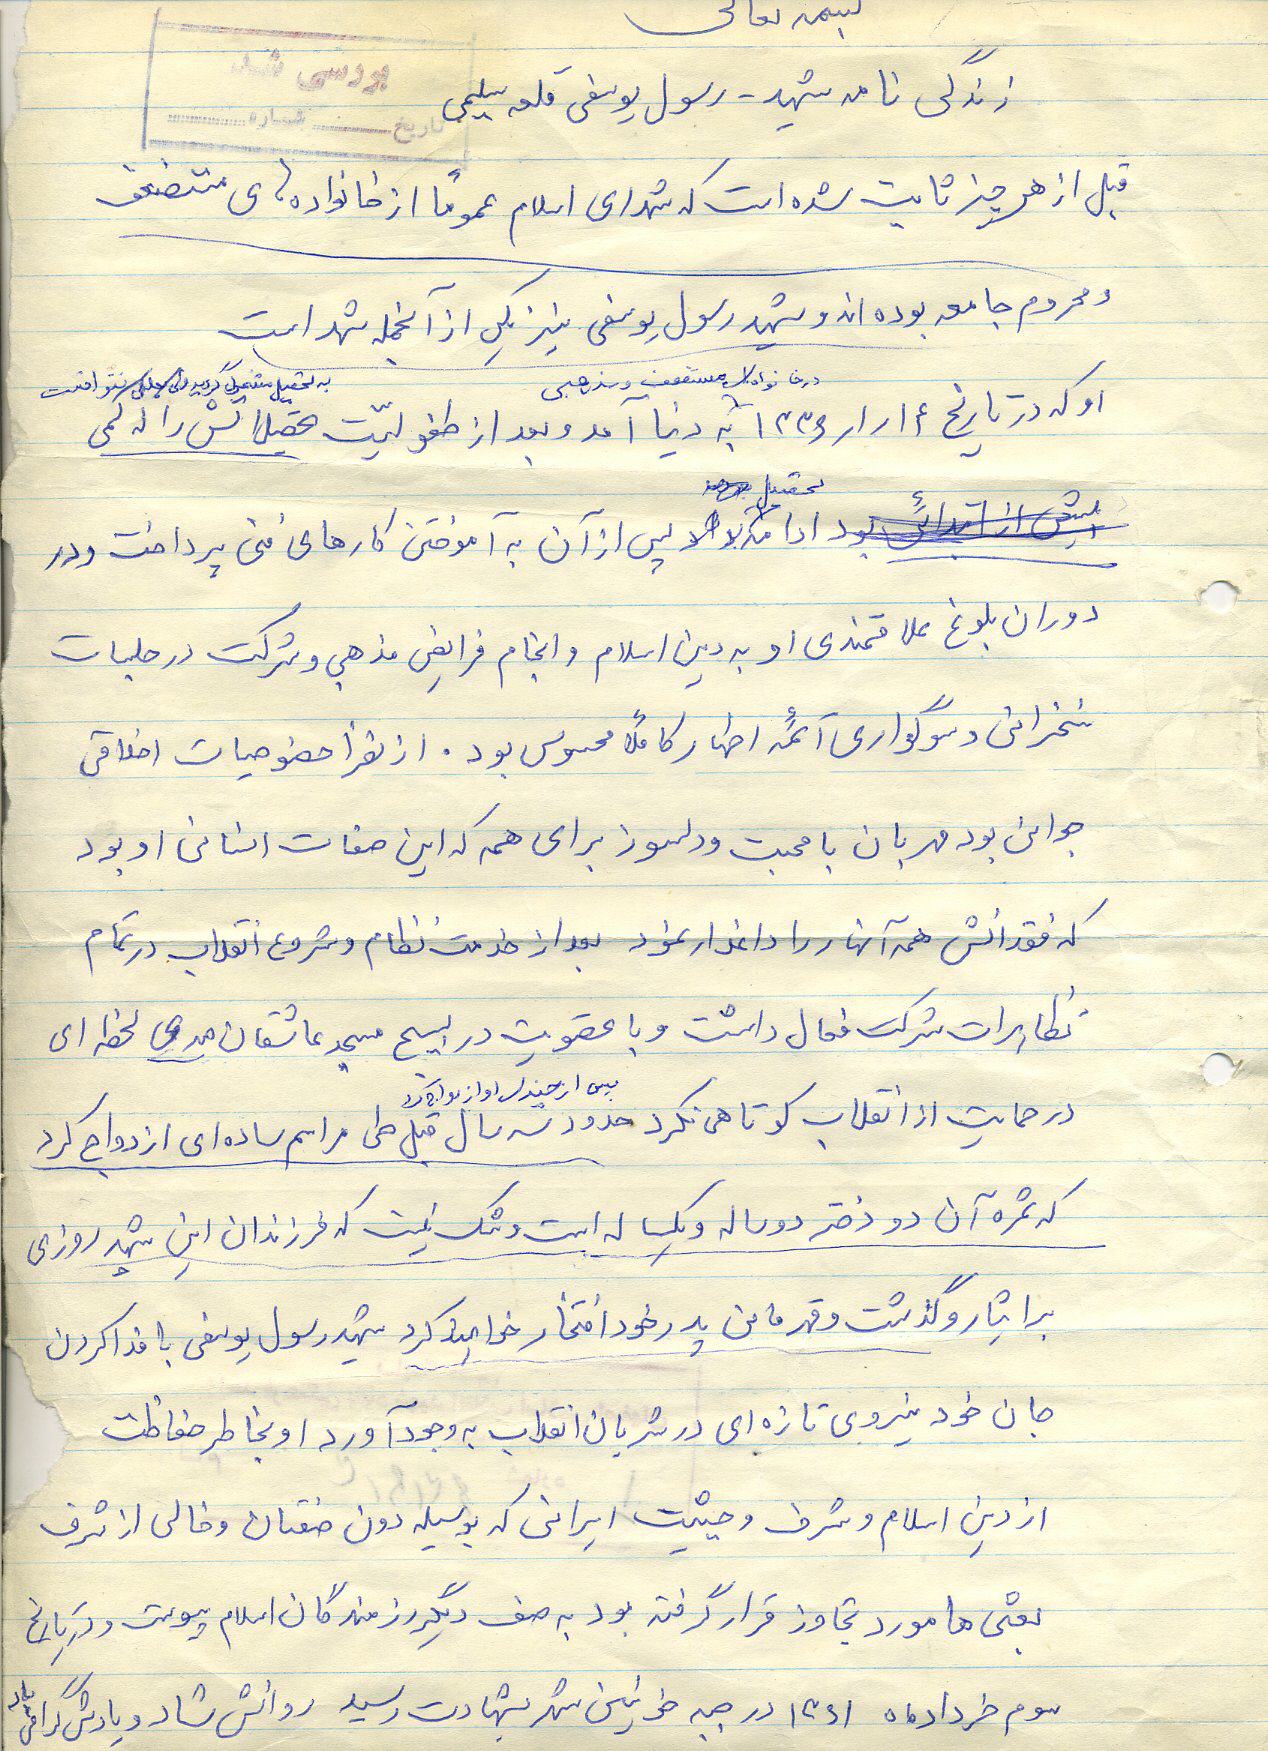 بسمه تعالی
بررسی شد
تاریخ شماره
زندگی نامه شهید - رسول یوسفی قلعه سلیمی
قبل از هر چیز ثابت شده است که شهدای اسلام عموماً از خانواده های مستضعف
و محروم جامعه بوده اند و شهید رسول یوسفی نیز یکی از آنجمله شهد است
در خانواده ای مستضعف و مذهبی
به تحصیل مشغول گردید ولی نتوانست
او که در تاریخ ۱۳۳۶ به دنیا آمد و بعد از طفولیّت تحصیلاتش را که کمی
تحصیل
بیش از ابتدائی بود ادامه پس از آن به آموختن کارهای فنی پرداخت و در
دوران بلوغ علاقمندی او به دین اسلام و انجام فرایض مذهبی و شرکت در جلسات
سخنرانی و سوگواری آئمه اطهار کاملاً محسوس بود . از نظر خصوصیات اخلاقی
جوانی بود مهربان با محبت و دلسوز برای همه که این صفات انسانی او بود
که فقدانش همه آنها را داغدار نمود بعد از خدمت نظام و شروع انقلاب در تمام
تظاهرات شرکت فعال داشت و با عضویت در بسیج مسجد عاشقان مهدی لحظه ای
پس از چندی او ازدواج کرد
در حمایت از انقلاب کوتاهی نکرد حدود سه سال قبل طی مراسم ساده ای ازدواج کرد
که ثمره آن دو دختر دوساله و یکساله است و شک نیست که فرزندان این شهید روزی
بر ایثار و گذشت و قهرمانی پدر خود افتخار خواهند کرد شهید رسول یوسفی با فدا کردن
جان خود نیروی تازه ای در شریان انقلاب به وجود آورد او بخاطر حفاظت
از دین اسلام و شرف و حیثیت ایرانی که بوسیله دون صفتان و خالی از شرف
بعثی ها مورد تجاوز قرار گرفته بود به صف دیگر رزمندگان اسلام پیوست و در تاریخ
سوم خرداد ماه ۱۳۶۱ در جبهه خونین شهر بشهادت رسید روانش شاد و یادش گرامی باد